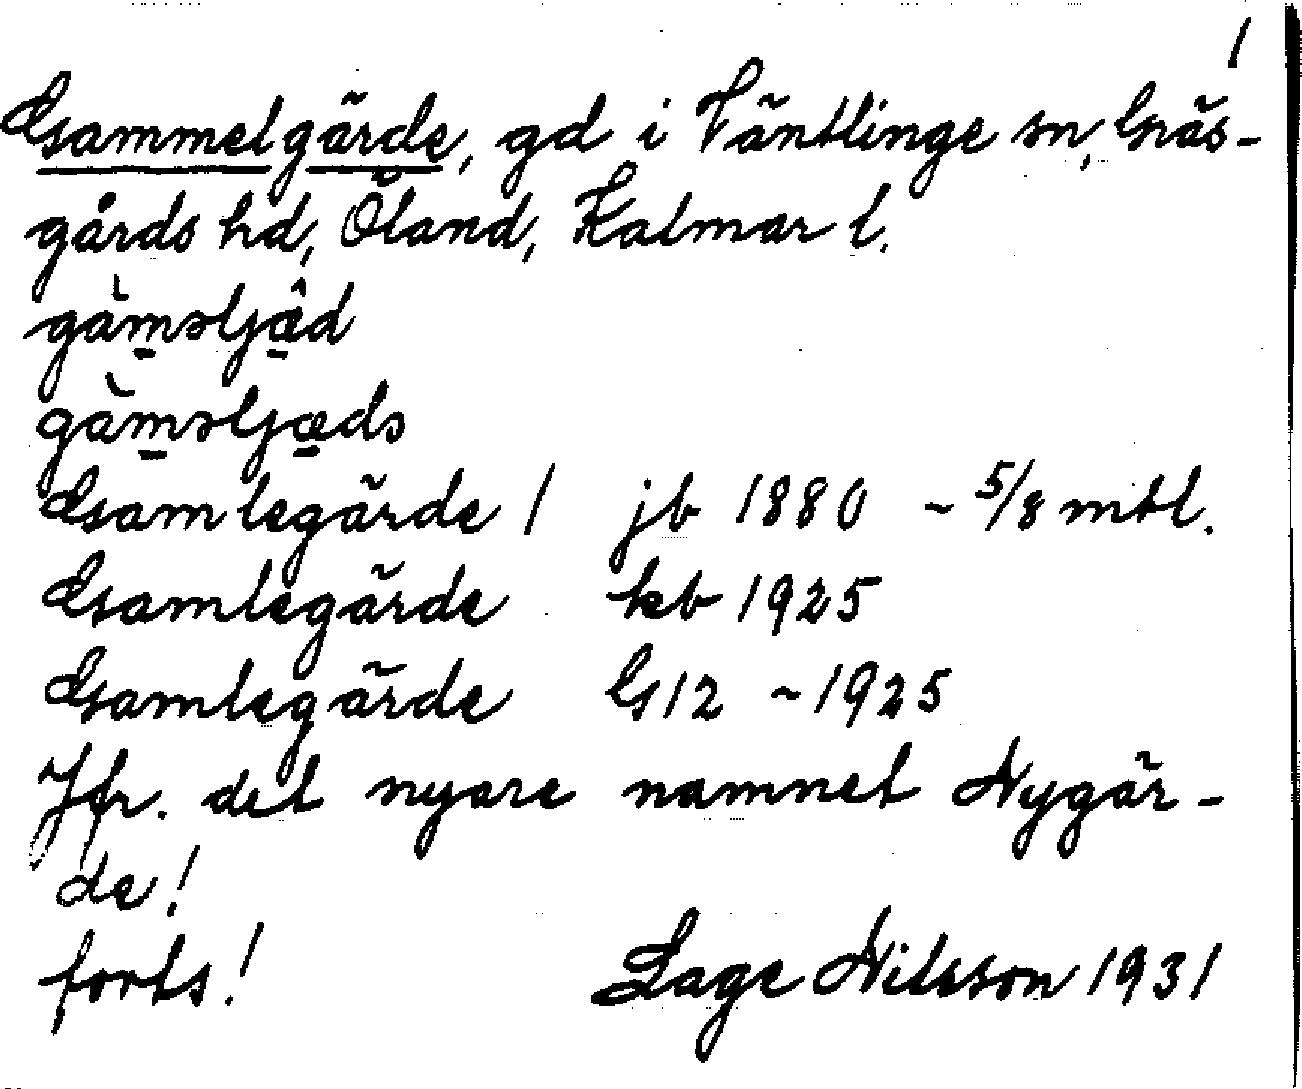 1
Gammelgärde, gd i Väntlinge sn, Gräs-
gårds hd, Öland, Kalmar l.
gàməljæ̂d
gàməljæds
Gamlegärde 1 jb 1880 ~ 5/8 mtl.
Gamlegärde kb 1925
Gamlegärde G12 ~ 1925
Jfr. det nyare namnet Nygär-
de!
forts! Lage Nilsson 1931